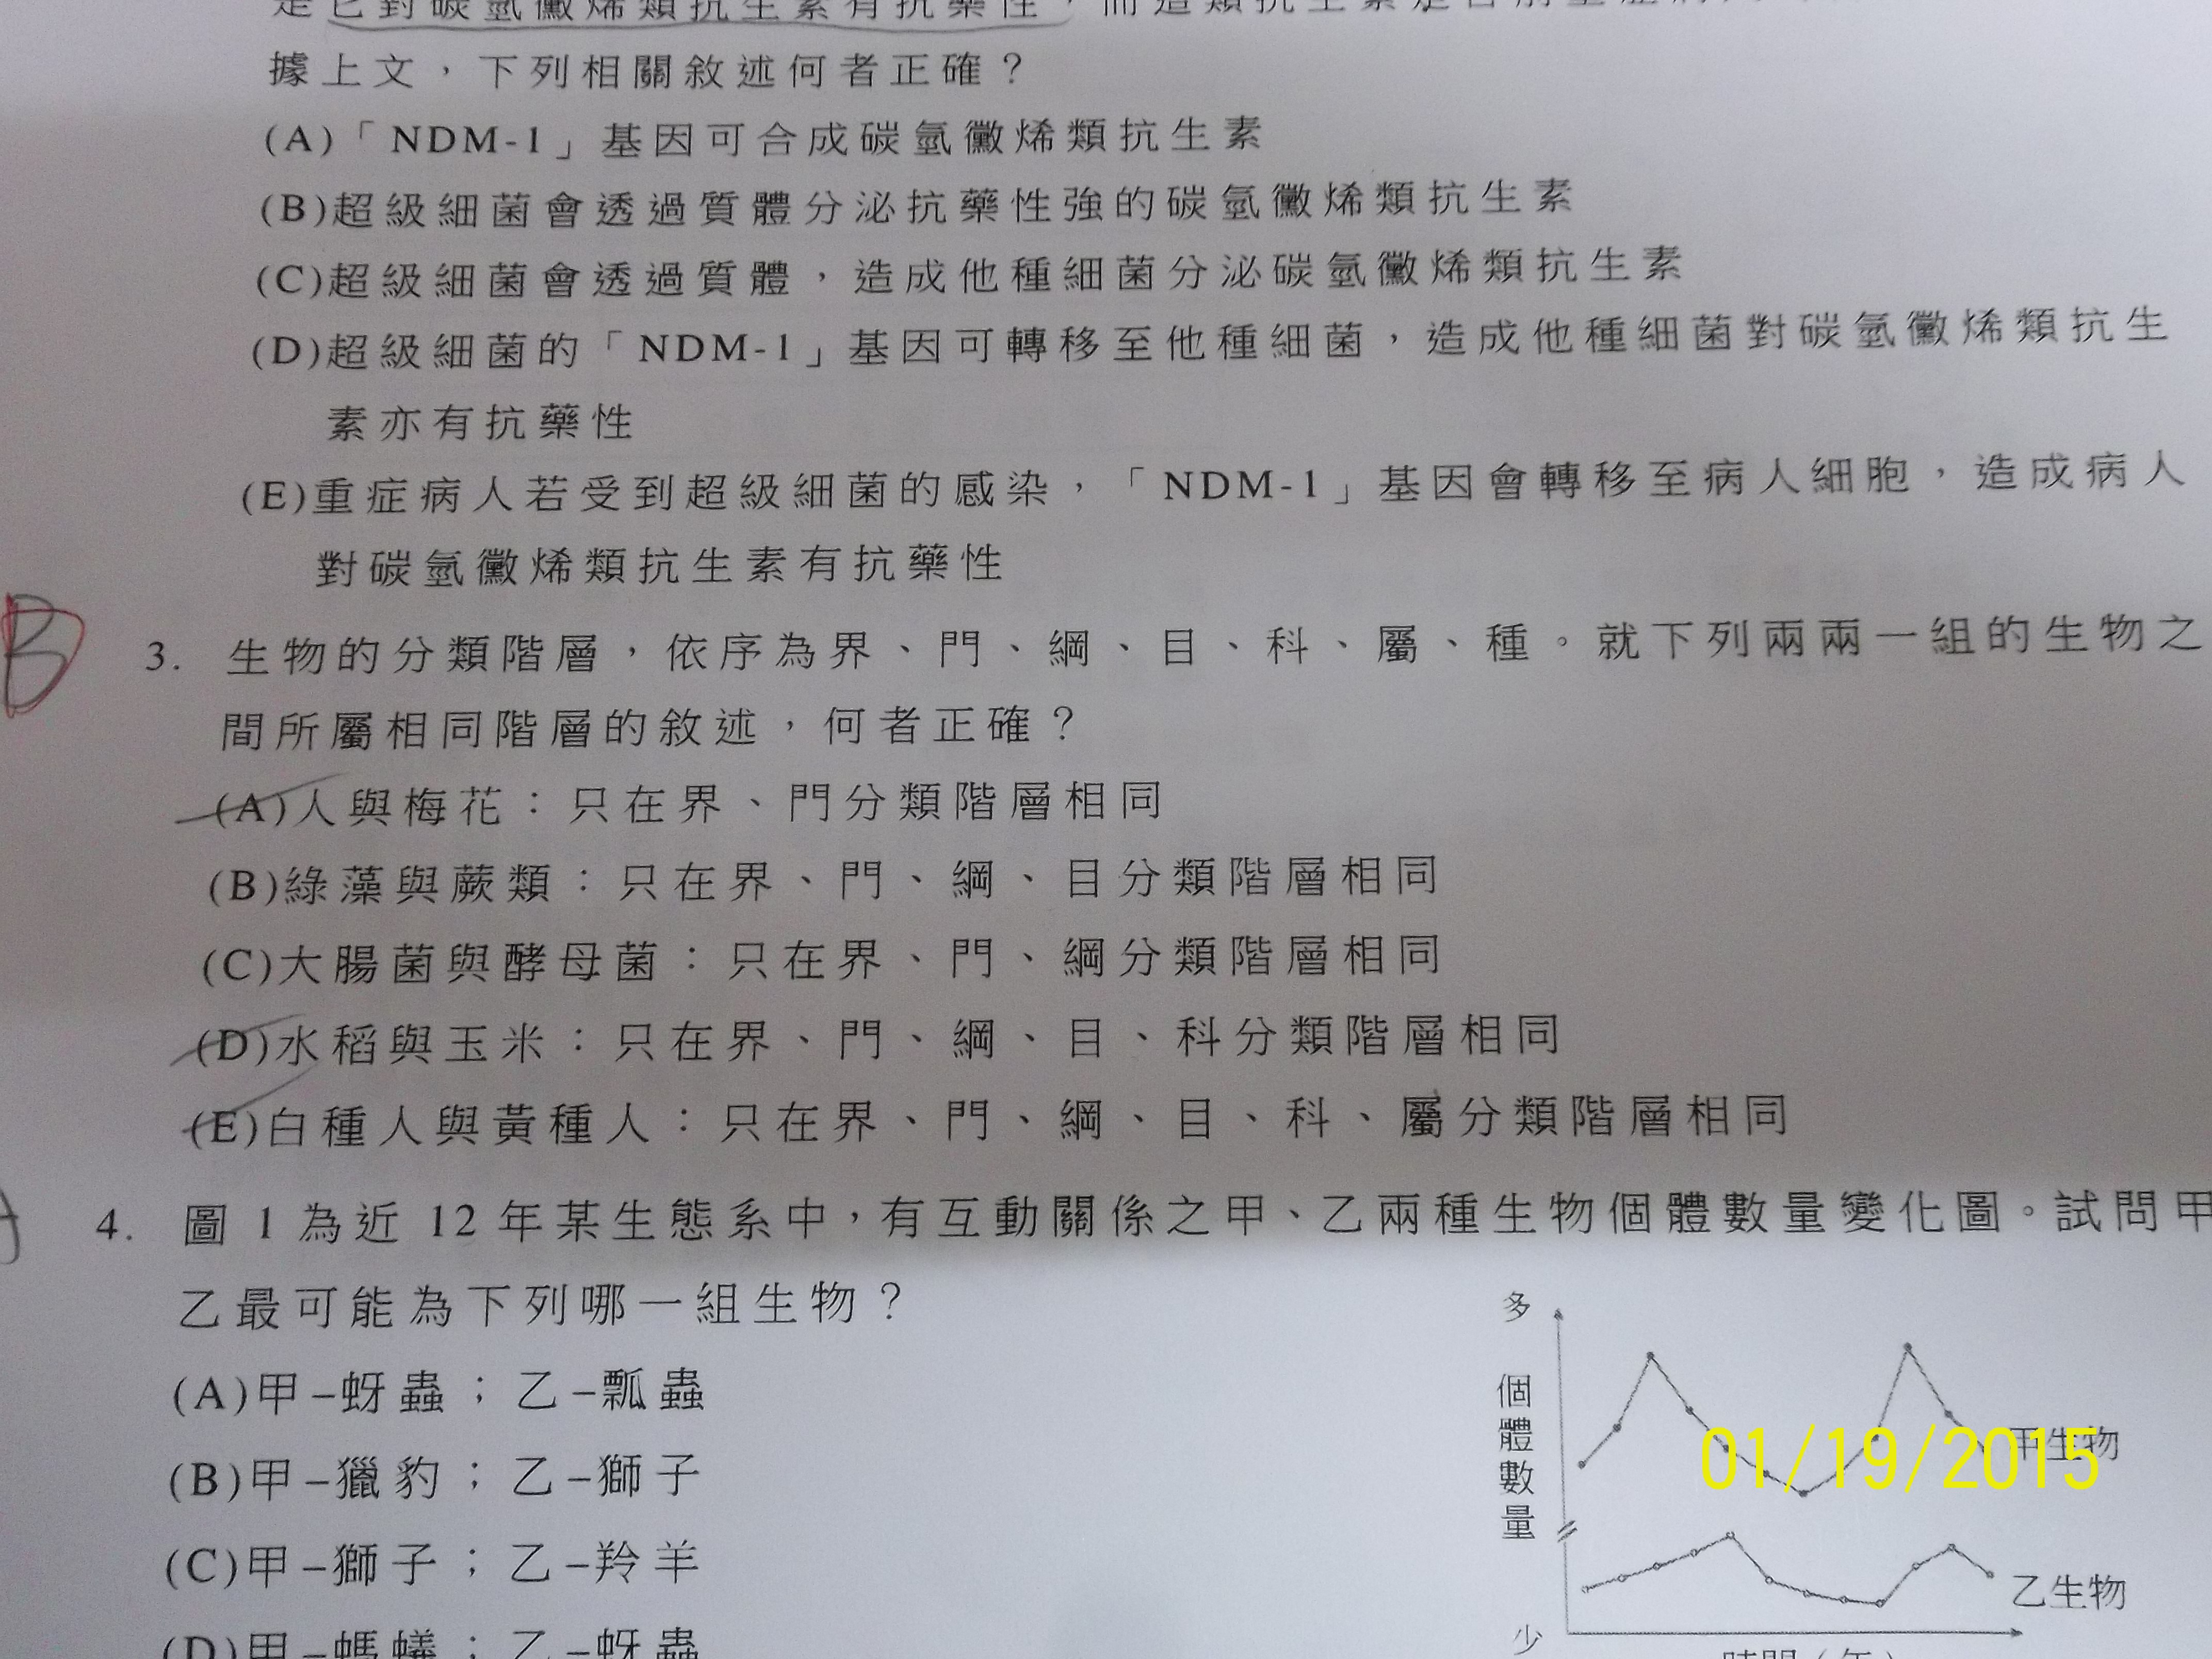 是它對碳氫黴烯類抗生素有抗藥性，而這類抗生素是目前重症病
據上文，下列相關敘述何者正確？
(A)「NDM-1」基因可合成碳氫黴烯類抗生素
(B)超級細菌會透過質體分泌抗藥性強的碳氫黴烯類抗生素
(C)超級細菌會透過質體，造成他種細菌分泌碳氫黴烯類抗生素
(D)超級細菌的「NDM-1」基因可轉移至他種細菌，造成他種細菌對碳氫黴烯類抗生
素亦有抗藥性
(E)重症病人若受到超級細菌的感染，「NDM-1」基因會轉移至病人細胞，造成病人
對碳氫黴烯類抗生素有抗藥性
B
3. 生物的分類階層，依序為界、門、綱、目、科、屬、種。就下列兩兩一組的生物之
間所屬相同階層的敘述，何者正確？
(A)人與梅花：只在界、門分類階層相同
(B)綠藻與蕨類：只在界、門、綱、目分類階層相同
(C)大腸菌與酵母菌：只在界、門、綱分類階層相同
(D)水稻與玉米：只在界、門、綱、目、科分類階層相同
(E)白種人與黃種人：只在界、門、綱、目、科、屬分類階層相同
4. 圖 1 為近 12 年某生態系中，有互動關係之甲、乙兩種生物個體數量變化圖。試問甲
乙最可能為下列哪一組生物？
(A)甲–蚜蟲；乙–瓢蟲
(B)甲–獵豹；乙–獅子
(C)甲–獅子；乙–羚羊
(D)甲–螞蟻；乙–蚜蟲
多
個體數量
少
甲生物
乙生物
時間（年）
01/19/2015